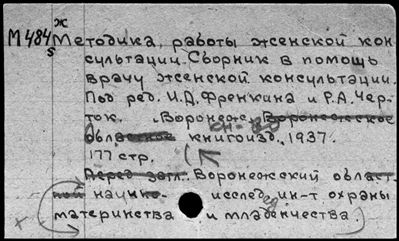 ж
М484 Методика работы женской кон
s
сультации. Сборник в помощь
врачу женской консультации.
Под ред. И.Д. Френкина и Р.А. Чер-
ток. Воронеж, Воронежское
областное книгоизд., 1937.
177 стр.
Перед загл. Воронежский област-
ной научно- исслед. ин-т охраны
материнства и младенчества)